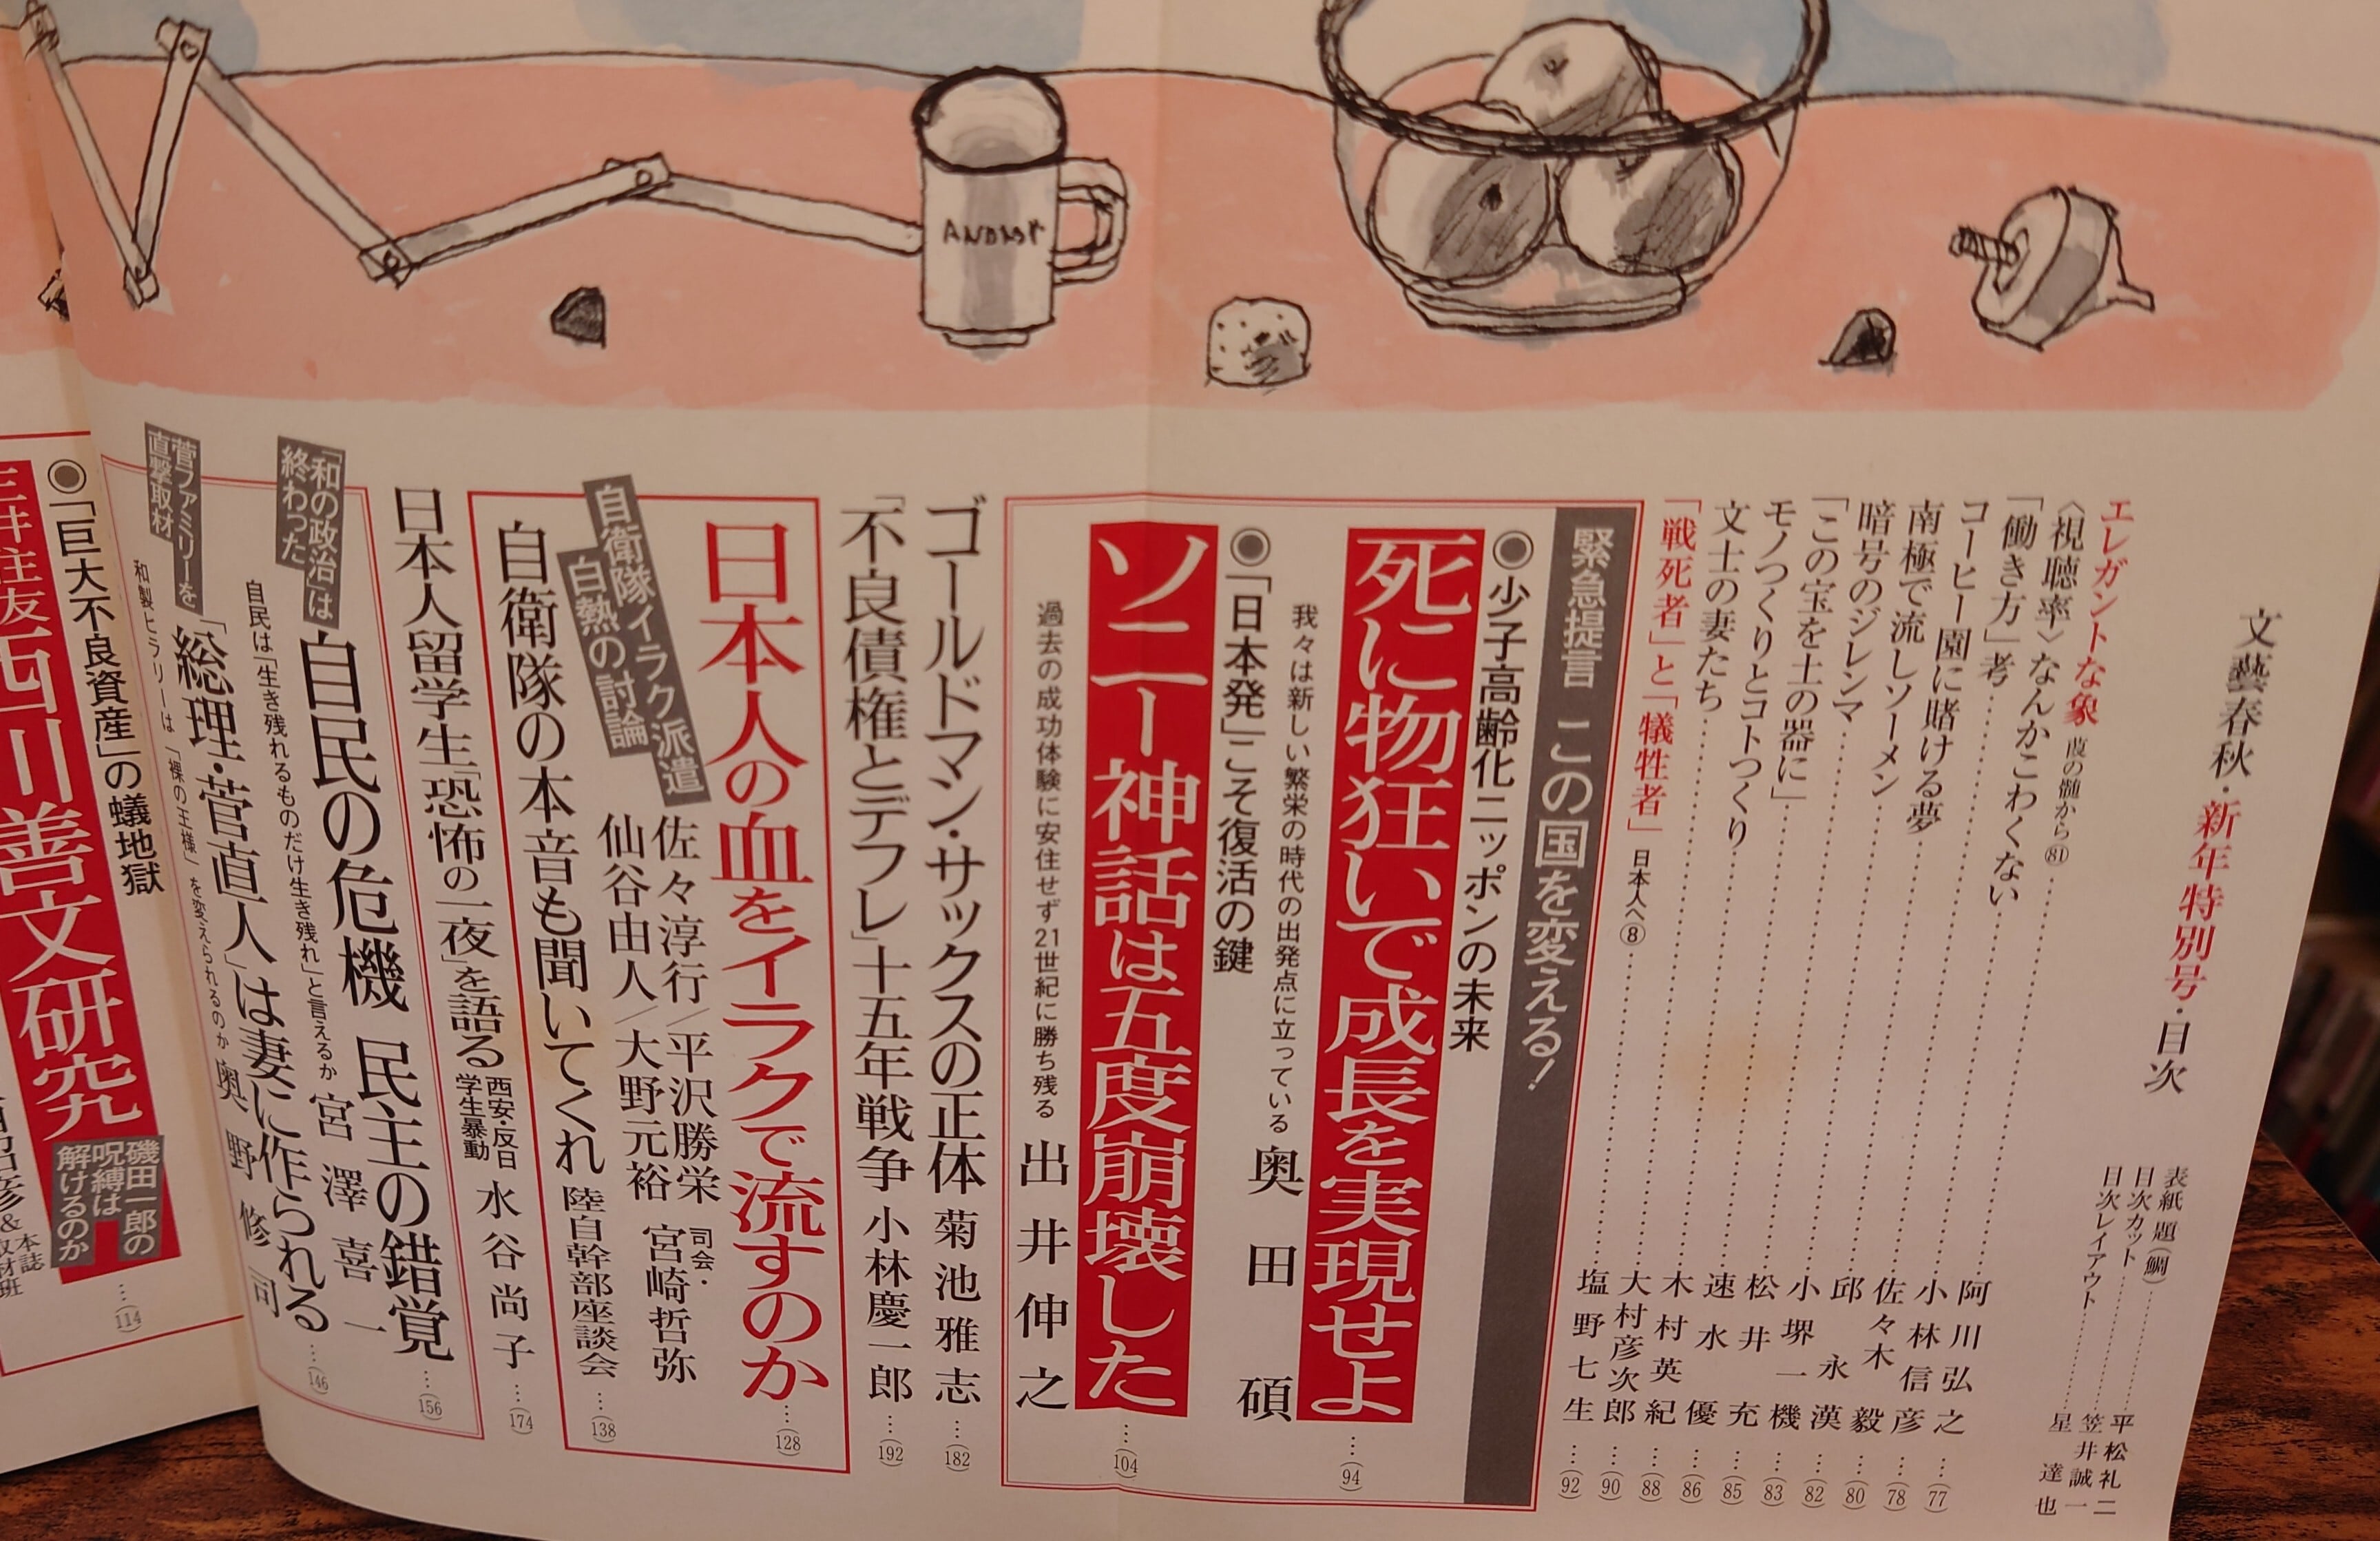 文藝春秋・新年特別号・目次
表紙 題(鯛)……平松礼二
目次カット……笠井誠一
目次レイアウト……星達也
エレガントな象
の髄から㉛ 阿川弘之…(77)
〈視聴率〉なんかこわくない 小林信彦…(78)
「働き方」考 佐々木毅…(80)
コーヒー園に賭ける夢 邱永漢…(82)
南極で流しソーメン 小堺一機…(83)
暗号のジレンマ 松井充…(85)
「この宝を土の器に」 速水優…(86)
モノつくりとコトつくり 木村英紀…(88)
文士の妻たち 大村彦次郎…(90)
「戦死者」と「犠牲者」 日本人へ⑧ 塩野七生…(92)
緊急提言 この国を変える!
◎少子高齢化ニッポンの未来
死に物狂いで成長を実現せよ…(94)
我々は新しい繁栄の時代の出発点に立っている 奥田碩
◎「日本発」こそ復活の鍵
ソニー神話は五度崩壊した…(104)
過去の成功体験に安住せず21世紀に勝ち残る 出井伸之
ゴールドマン・サックスの正体 菊池雅志…(182)
「不良債権とデフレ」十五年戦争 小林慶一郎…(192)
日本人の血をイラクで流すのか…(128)
自衛隊イラク派遣
白熱の討論
佐々淳行/平沢勝栄 司会・
仙谷由人/大野元裕 宮崎哲弥
自衛隊の本音も聞いてくれ 陸自幹部座談会…(138)
日本人留学生「恐怖の一夜」を語る 西安・反日学生暴動 水谷尚子…(174)
「和の政治」は
終わった
自民の危機 民主の錯覚…(156)
自民は「生き残れるものだけ生き残れ」と言えるか 宮澤喜一
菅ファミリーを
直撃取材
「総理・菅直人」は妻に作られる…(146)
和製ヒラリーは「裸の王様」を変えられるのか 奥野修司
◎「巨大不良資産」の蟻地獄
三井住友西川善文研究
磯田一郎の
呪縛は
解けるのか
…(114)
本誌
取材班
ANDMY